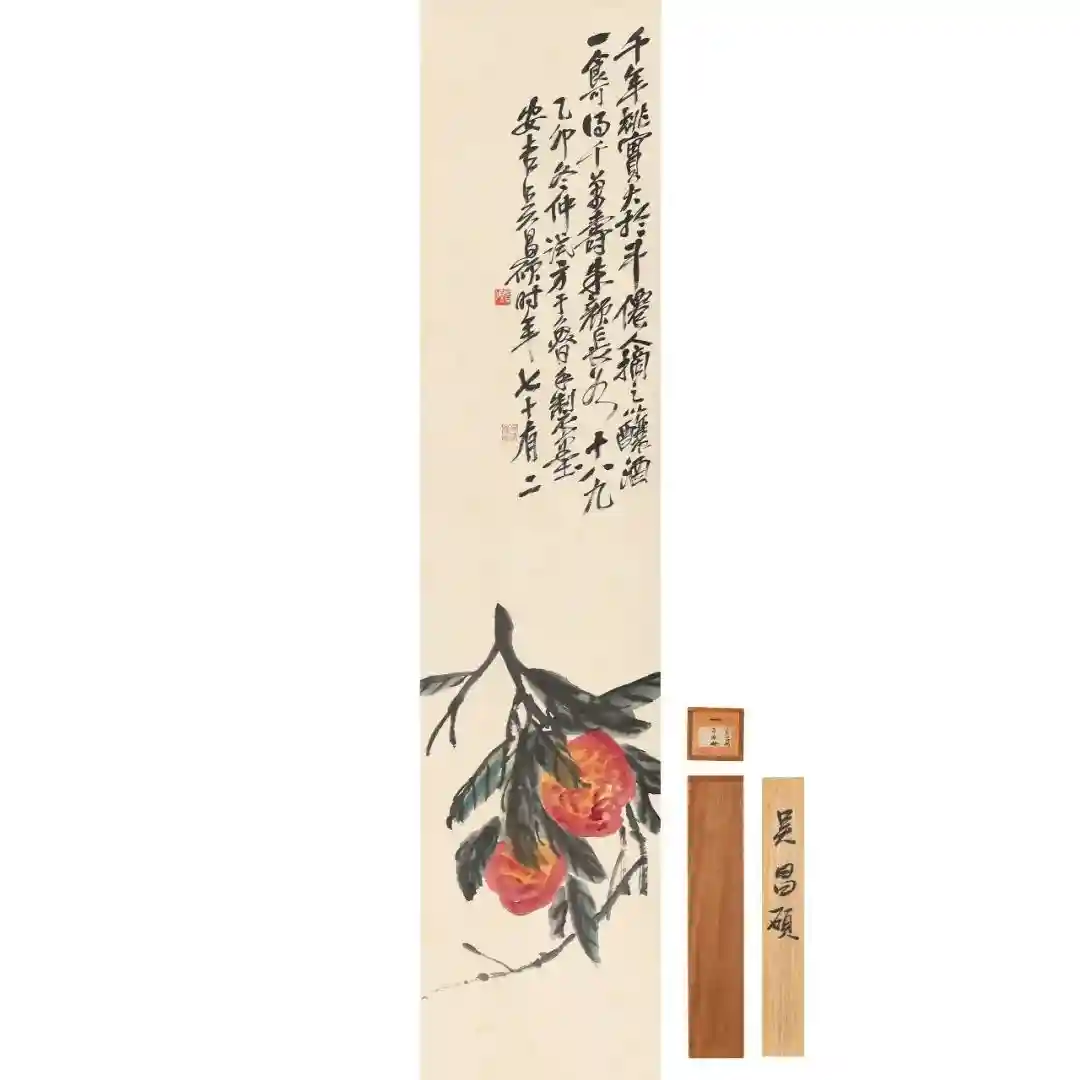 千年桃實大於斗僊人摘之以釀酒
一食可得千萬壽朱顏長如十八九
乙卯冬仲試方于魯手製墨
安吉吳昌碩時年七十有二
吳昌碩